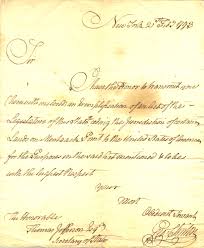 New York 21st Feb. 1793
Sir
I have the Honor to transmit you
herewith inclosed an exemplification of an Act of the
Legislature of this State ceding the Jurisdiction of certain
Lands on Montauck Point to the United States of America
for the Purposes therein mentioned to be
with the
Respect
Your
Most
Obedient Servant
The Honorable
Thomas Jefferson Esqr
Secretary of State